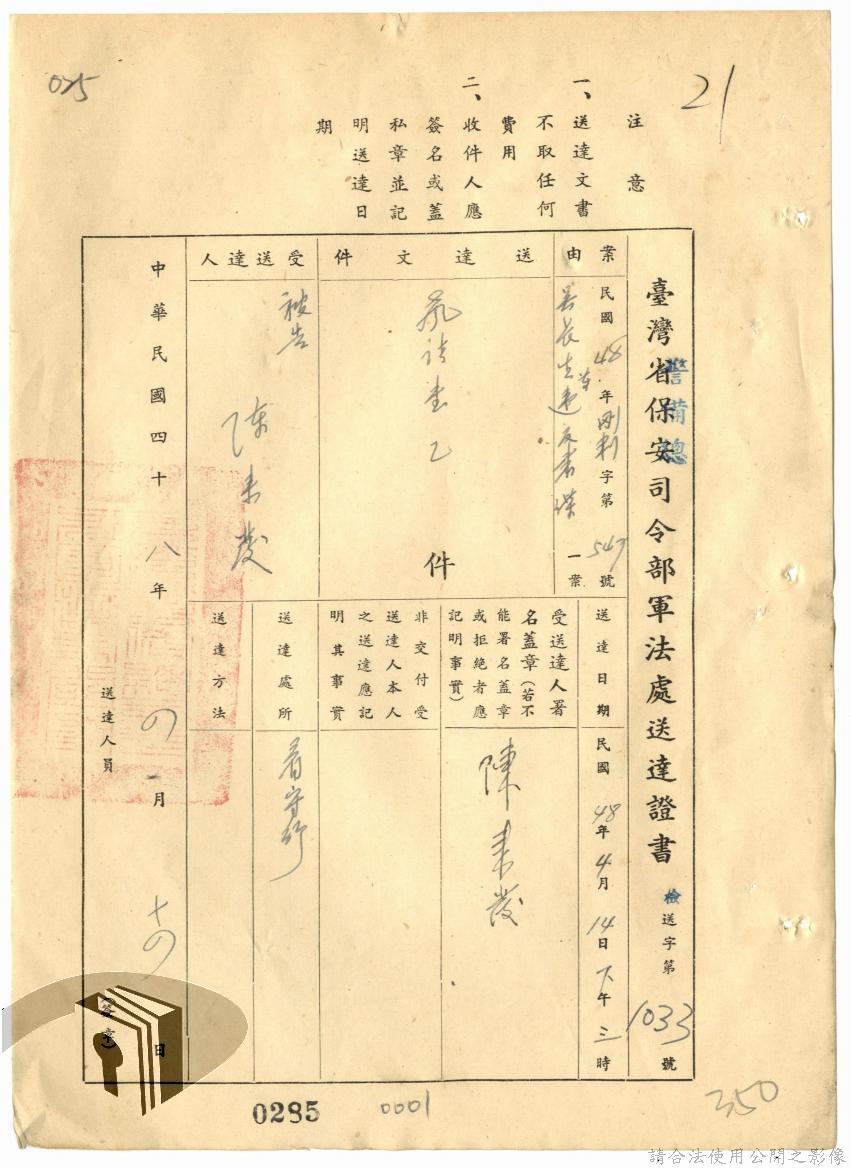 025
21
注意
一、送達文書
不取任何
費用
二、收件人應
簽名或蓋
私章並記
明送達日
期
臺灣省保安司令部軍法處送達證書
警備總
檢送字第1033號
案由
民國48年字第547號
一案
送達文件
起訴書乙
件
受送達人
被告
陳來發
送達日期
民國48年4月14日下午三時
受送達人署
名蓋章(若不
能署名蓋章
或拒絕者應
記明事實)
陳來發
非交付受
送達人本人
之送達應記
明其事實
送達處所
看守所
送達方法
中華民國四十八年四月十四日
送達人員
(簽章)
0285
0001
350
請合法使用公開之影像